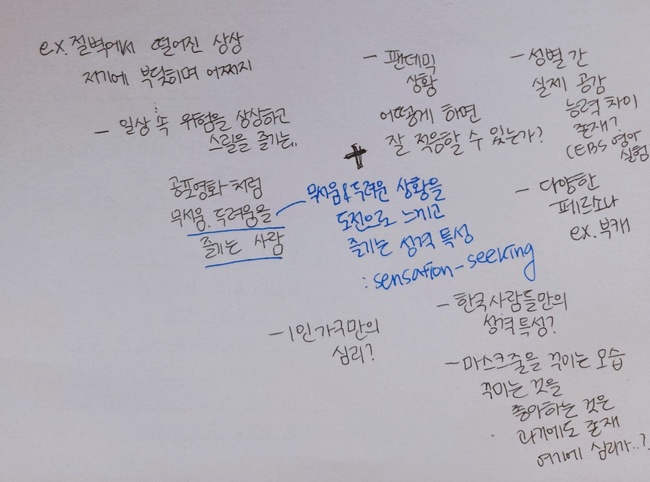 ex. 절벽에서 떨어진 상상
저기에 부딪히면 어쩌지
- 일상 속 위험을 상상하고
스릴을 즐기는..
공포영화처럼
무서움. 두려움을
즐기는 사람
- 팬데믹
상황
어떻게 하면
잘 적응할 수 있는가?
+
무서움&두려운 상황을
도전으로 느끼고
즐기는 성격 특성
: sensation-seeking
- 성별 간
실제 공감
능력 차이
존재?
(EBS 영아
실험
- 다양한
페르소나
ex. 부캐
- 1인가구만의
심리?
- 한국사람들만의
성격특성?
- 마스크줄을 꾸미는 모습
꾸미는 것을
좋아하는 것은
과거에도 존재
여기에 심리가..?